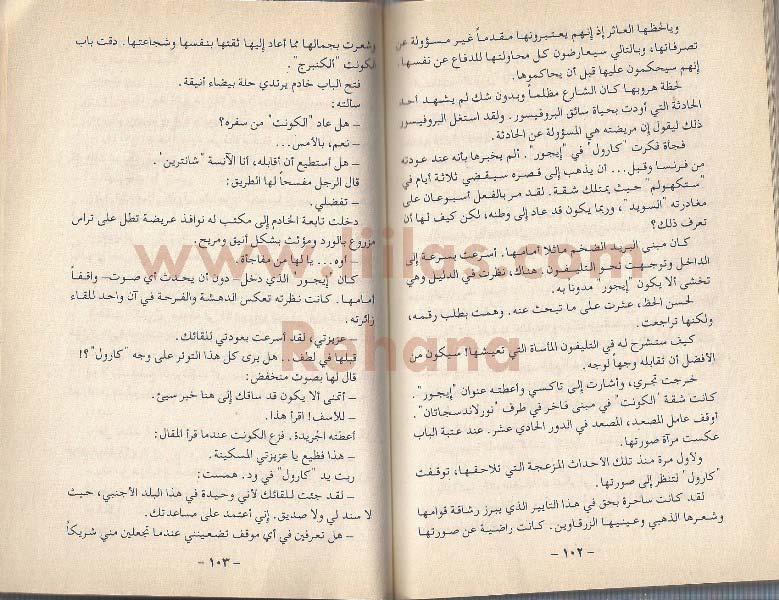 ويالحظها العاثر إذ إنهم يعتبرونها مقدماً غير مسؤولة عن
تصرفاتها، وبالتالي سيعارضون كل محاولتها للدفاع عن نفسها.
إنهم سيحكمون عليها قبل أن يحاكموها.
لحظة هروبها كان الشارع مظلماً وبدون شك لم يشهد أحد
الحادثة التي أودت بحياة سائق البروفيسور. ولقد استغل البروفيسور
ذلك ليقول إن مريضته هي المسؤولة عن الحادثة.
فجأة فكرت "كارول" في "إيجور". ألم يخبرها بأنه عند عودته
من فرنسا وقبل... أن يذهب إلى قصره سيقضي ثلاثة أيام في
"ستكهولم" حيث يمتلك شقة. لقد مر بالفعل أسبوعان على
مغادرته "السويد"، وربما يكون قد عاد إلى وطنه، لكن كيف لها أن
تعرف ذلك؟
كان مبنى البريد الضخم ماثلا أمامها. أسرعت بسرعة إلى
الداخل وتوجهت نحو التليفون هناك، نظرت في الدليل وهي
تخشى ألا يكون "إيجور" مدونا به.
لحسن الحظ، عثرت على ما تبحث عنه. وهمت بطلب رقمه،
ولكنها تراجعت.
كيف ستشرح له في التليفون المأساة التي تعيشها! سيكون من
الأفضل أن تقابله وجهاً لوجه.
خرجت تجري، وأشارت إلى تاكسي وأعطته عنوان "إيجور".
كانت شقة "الكونت" في مبنى فاخر في طرف "نورلاندسجاتان".
أوقف عامل المصعد، المصعد في الدور الحادي عشر. عند عتبة الباب
عكست مرآة صورتها.
ولأول مرة منذ تلك الأحداث المزعجة التي تلاحقها، توقفت
"كارول" لتنظر إلى صورتها.
لقد كانت ساحرة بحق في هذا التايير الذي يبرز رشاقة قوامها
وشعرها الذهبي وعينيها الزرقاوين. كانت راضية عن صورتها
- ١٠٢ -
وشعرت بجمالها مما أعاد إليها ثقتها بنفسها وشجاعتها. دقت باب
الكونت "ألكنبرج".
فتح الباب خادم يرتدي حلة بيضاء أنيقة.
سألته:
– هل عاد "الكونت" من سفره؟
– نعم، بالأمس...
– هل أستطيع أن أقابله، أنا الآنسة "شانترين".
قال الرجل مفسحاً لها الطريق:
– تفضلي.
دخلت تابعة الخادم إلى مكتب له نوافذ عريضة تطل على تراس
مزروع بالورد ومؤثث بشكل أنيق ومريح.
– أوه... يا لها من مفاجأة.
كان "إيجور" الذي دخل– دون أن يحدث أي صوت– واقفاً
أمامها. كانت نظرته تعكس الدهشة والفرحة في آن واحد للقاء
زائرته.
– عزيزتي، لقد أسرعت بعودتي للقائك.
قبلها في لطف... هل يرى كل هذا التوتر على وجه "كارول"؟!
قال لها بصوت منخفض:
– أتمنى ألا يكون قد ساقك إلى هنا خبر سيئ.
– للأسف! اقرأ هذا.
أعطته الجريدة. فزع الكونت عندما قرأ المقال:
– هذا فظيع يا عزيزتي المسكينة.
ربت يد "كارول" في ود. همست:
– لقد جئت للقائك لأني وحيدة في هذا البلد الأجنبي، حيث
لا سند لي ولا صديق. إني أعتمد على مساعدتك.
– هل تعرفين في أي موقف تضعينني عندما تجعلين مني شريكاً
- ١٠٣ -
www.liilas.com
Rahana